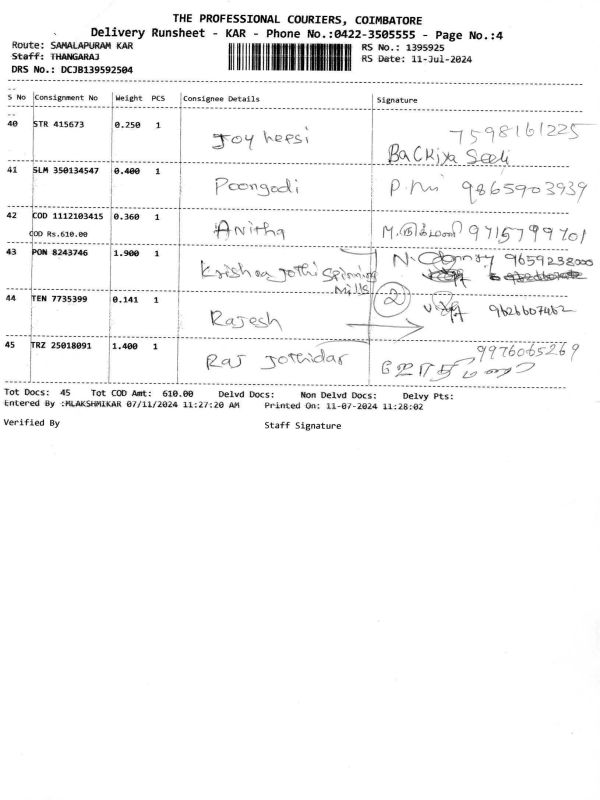 THE PROFESSIONAL COURIERS, COIMBATORE
Delivery Runsheet - KAR - Phone No.:0422-3505555 - Page No.:4
Route: SAMALAPURAM KAR RS No.: 1395925
Staff: THANGARAJ RS Date: 11-Jul-2024
DRS No.: DCJB139592504
S No Consignment No Weight PCS Consignee Details Signature
40 STR 415673 0.250 1 Joy hepsi 7598161225
Backiya
41 SLM 350134547 0.400 1 Poongodi 9865903939
42 COD 1112103415 0.360 1 Anitha 9715799701
COD Rs.610.00
43 PON 8243746 1.900 1 Krishna jothi Spinning Mills 9659238000
44 TEN 7735399 0.141 1 Rajesh 2 9626607462
45 TRZ 25018091 1.400 1 Raj Jothidar 9976065269
Tot Docs: 45 Tot COD Amt: 610.00 Delvd Docs: Non Delvd Docs: Delvy Pts:
Entered By :MLAKSHMIKAR 07/11/2024 11:27:20 AM Printed On: 11-07-2024 11:28:02
Verified By Staff Signature